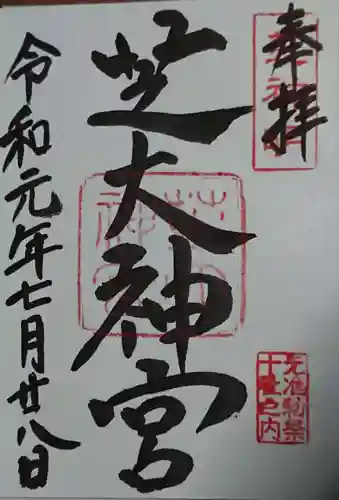 奉拝
芝大神宮
令和元年七月廿八日